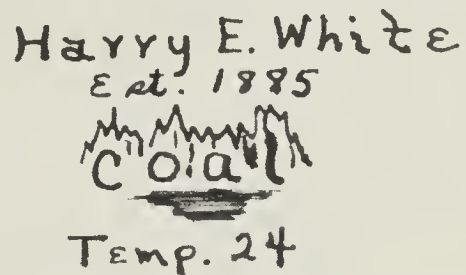 Harry E. White
Est. 1885
Coal
Temp. 24